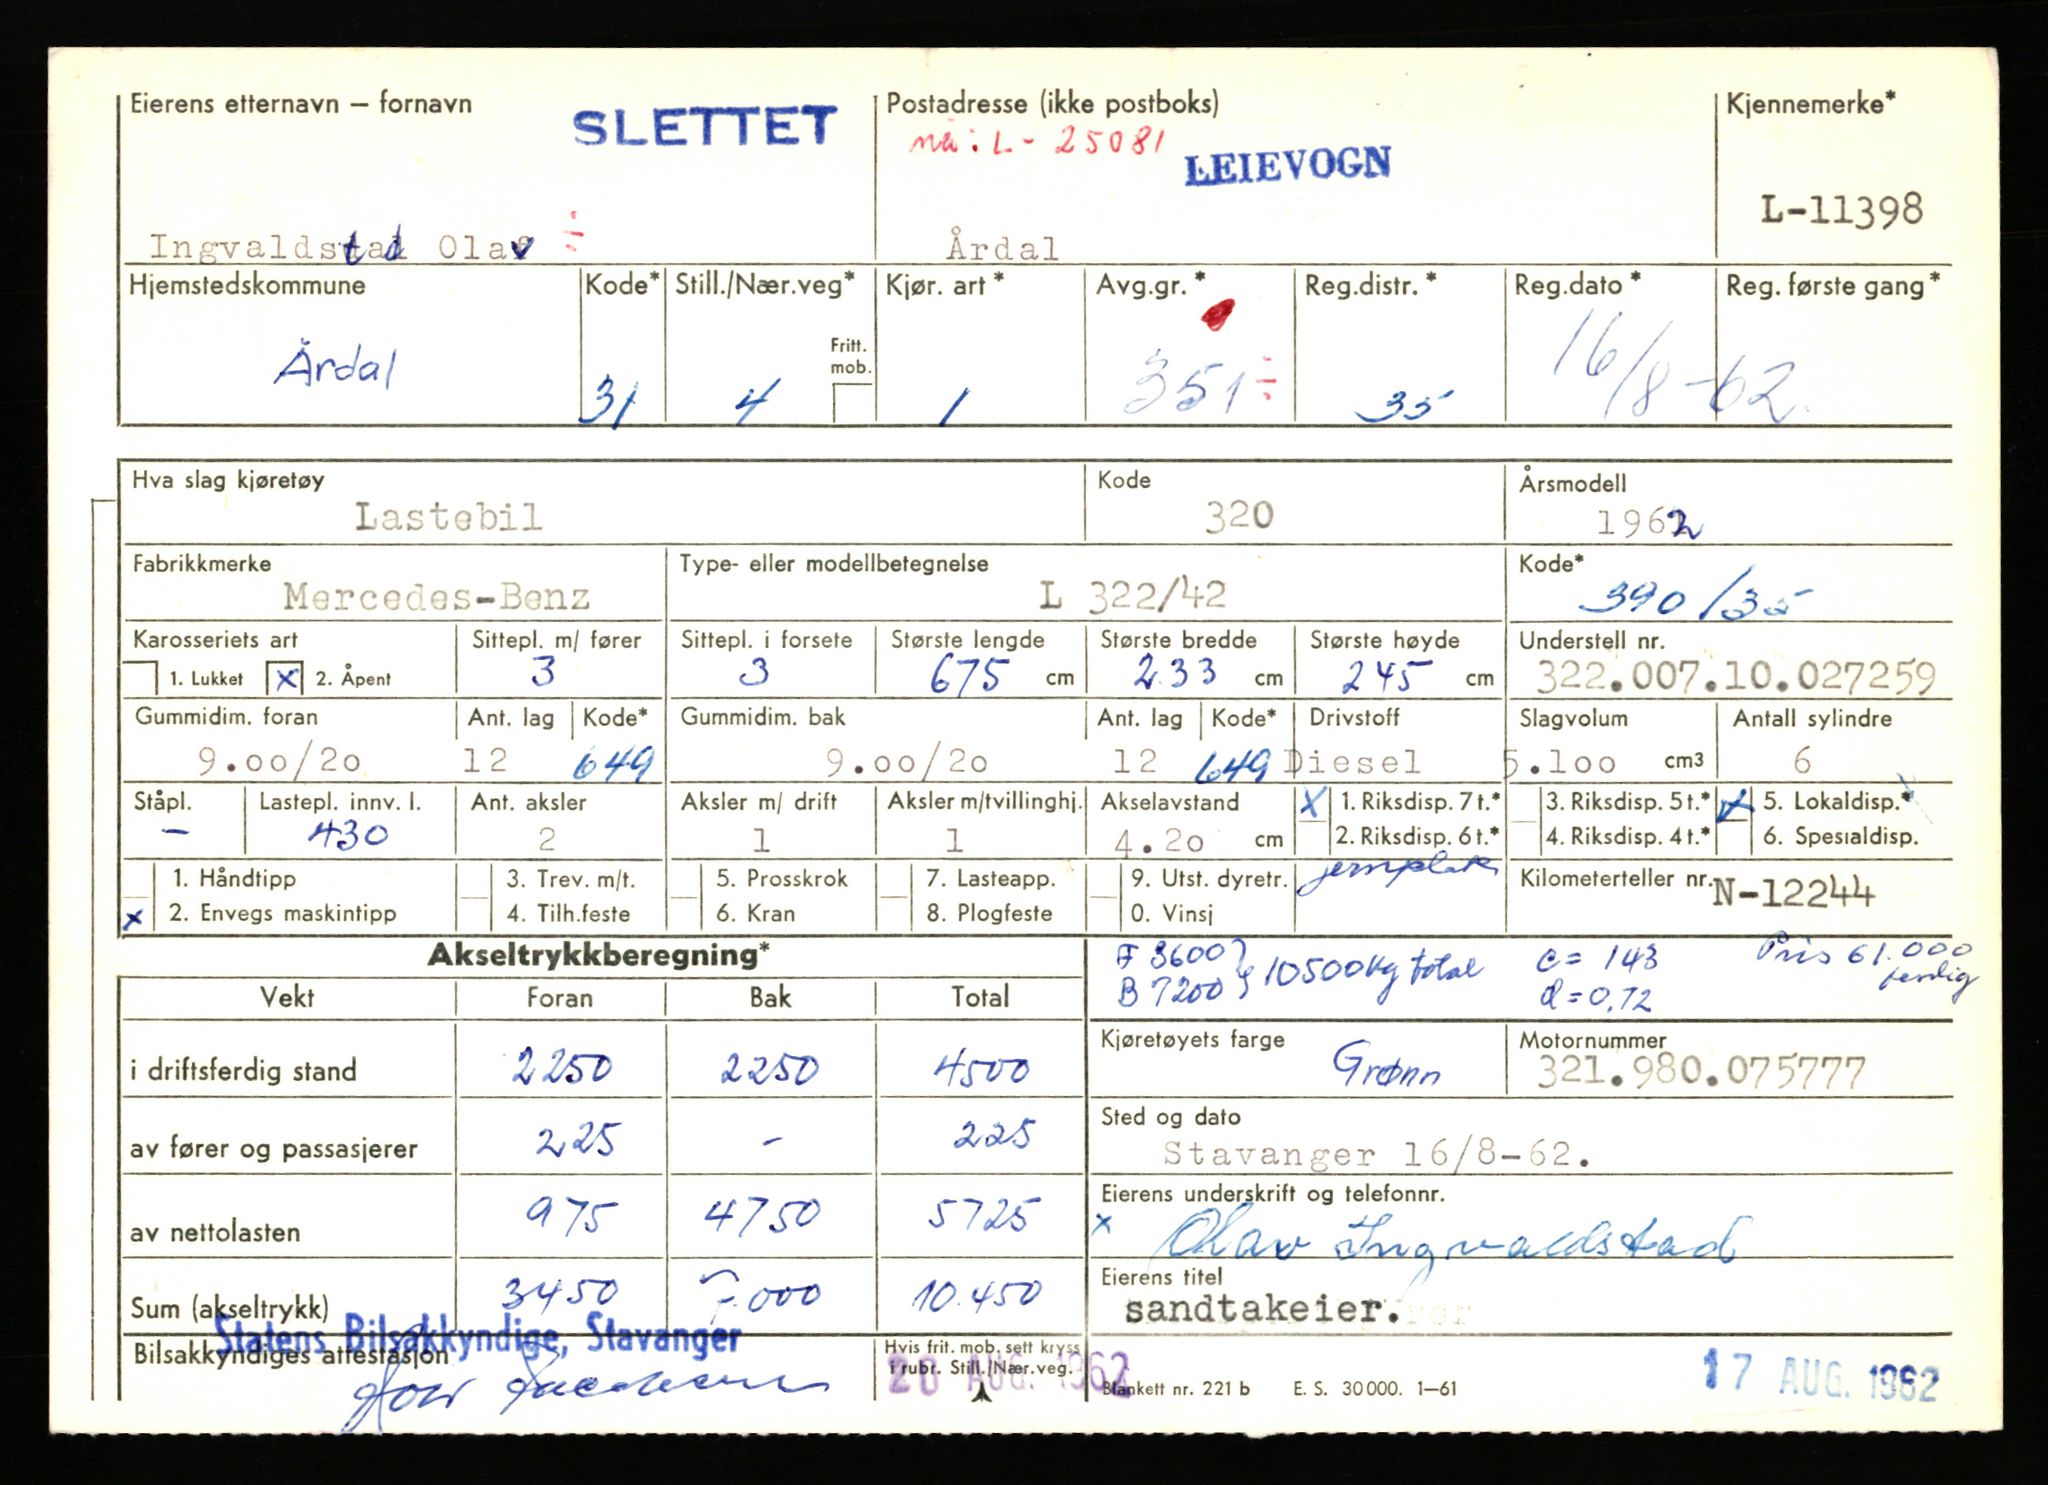 Eierens etternavn – fornavn
SLETTET
Postadresse (ikke postboks)
nå: L- 25081
LEIEVOGN
Kjennemerke*
L-11398
Ingvaldstad Olav
Årdal
Hjemstedskommune Kode* Still./Nær.veg* Kjør. art* Avg.gr.* Reg.distr.* Reg.dato* Reg. første gang*
Fritt. mob.
Årdal 31 4 1 351 35 16/8-62.
Hva slag kjøretøy Kode Årsmodell
Lastebil 320 1962
Fabrikkmerke Type- eller modellbetegnelse Kode*
Mercedes-Benz L 322/42 390/35
Karosseriets art Sittepl. m/ fører Sittepl. i forsete Største lengde Største bredde Største høyde Understell nr.
1. Lukket x 2. Åpent 3 3 675 cm 233 cm 245 cm 322.007.10.027259
Gummidim. foran Ant. lag Kode* Gummidim. bak Ant. lag Kode* Drivstoff Slagvolum Antall sylindre
9.00/20 12 649 9.00/20 12 649 Diesel 5.100 cm3 6
Ståpl. Lastepl. innv. l. Ant. aksler Aksler m/ drift Aksler m/tvillinghj. Akselavstand x 1. Riksdisp. 7 t.* 3. Riksdisp. 5 t.* x 5. Lokaldisp.*
– 430 2 1 1 4.20 cm 2. Riksdisp. 6 t.* 4. Riksdisp. 4 t.* 6. Spesialdisp.
1. Håndtipp 3. Trev. m/t. 5. Prosskrok 7. Lasteapp. 9. Utst. dyretr. jernplate Kilometerteller nr. N-12244
x 2. Envegs maskintipp 4. Tilh.feste 6. Kran 8. Plogfeste 0. Vinsj
Akseltrykkberegning*
F 3600 } 10500kg total c = 143 Pris 61.000
B 7200 d = 0,72 ferdig
Vekt Foran Bak Total
Kjøretøyets farge Motornummer
i driftsferdig stand 2250 2250 4500
Grønn 321.980.075777
Sted og dato
av fører og passasjerer 225 – 225
Stavanger 16/8-62.
Eierens underskrift og telefonnr.
av nettolasten 975 4750 5725
x Olav Ingvaldstad
Eierens titel
Sum (akseltrykk) 3450 7.000 10.450
sandtakeier.
Statens Bilsakkyndige, Stavanger
Bilsakkyndiges attestasjon
Hvis frit. mob. sett kryss
i rubr. Still./Nær.veg.
20 AUG. 1962
Blankett nr. 221 b E. S. 30000. 1–61
17 AUG. 1962